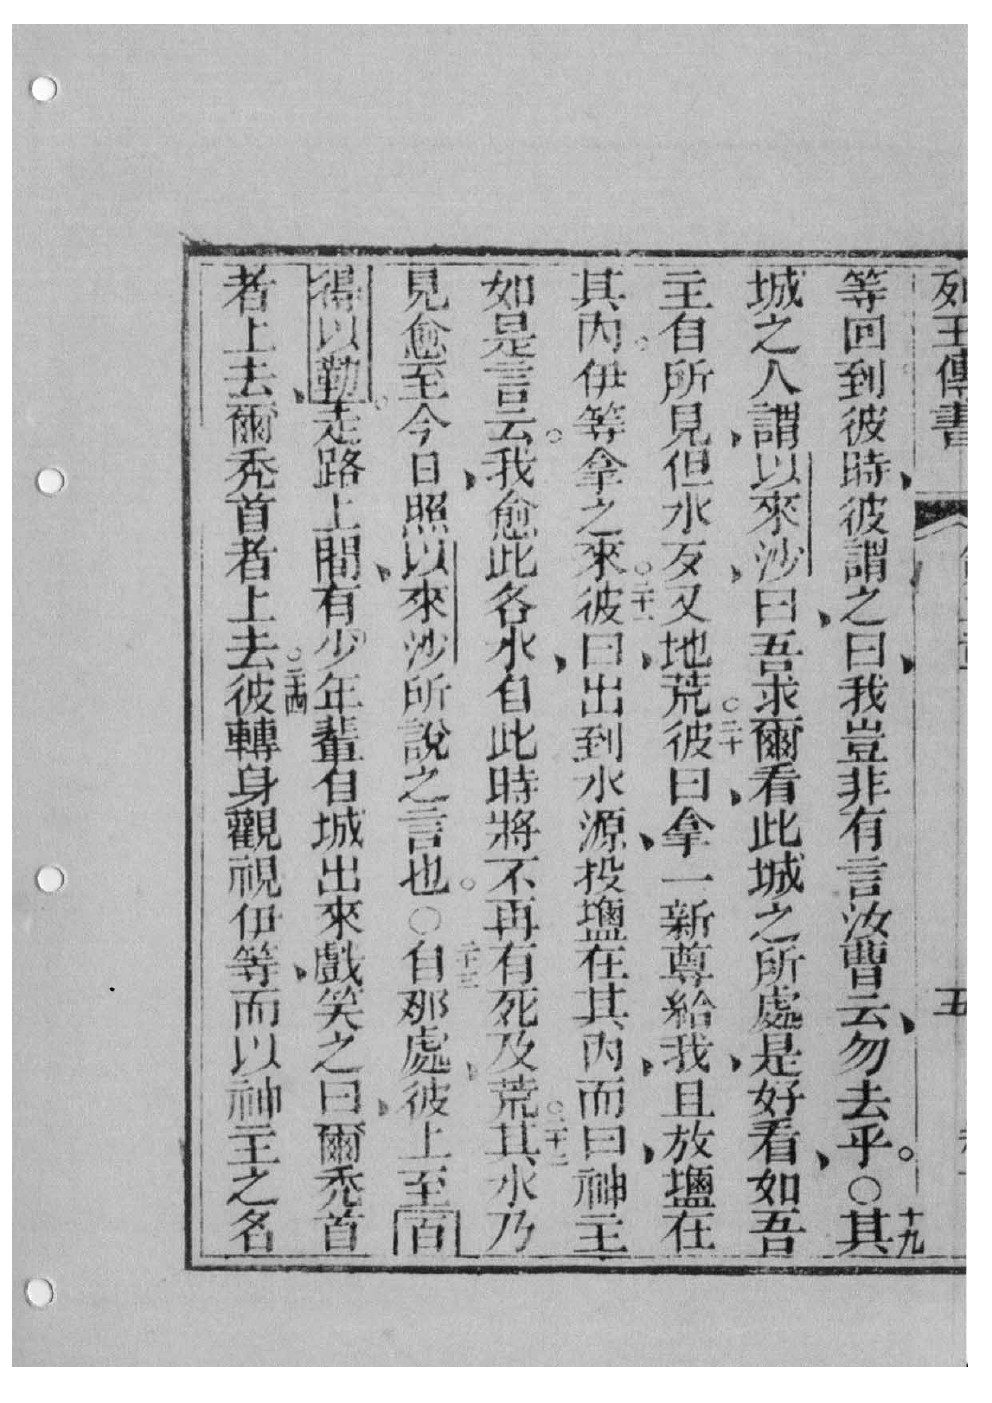 列王傳書 五
等回到彼時彼謂之曰我豈非有言汝曹云勿去乎。○十九其
城之人謂以來沙曰吾求爾看此城之所處是好看如吾
主自所見但水歹又地荒○二十彼曰拿一新尊給我且放鹽在
其內。伊等拿之來○二十一彼曰出到水源投鹽在其內而曰神主
如是言云。我愈此各水自此時將不再有死及荒○二十二其水乃
見愈至今日照以來沙所說之言也。○二十三自那處彼上至百
得以勒。走路上間有少年輩自城出來戲笑之曰爾禿首
者上去爾禿首者上去○二十四彼轉身觀視伊等而以神主之名